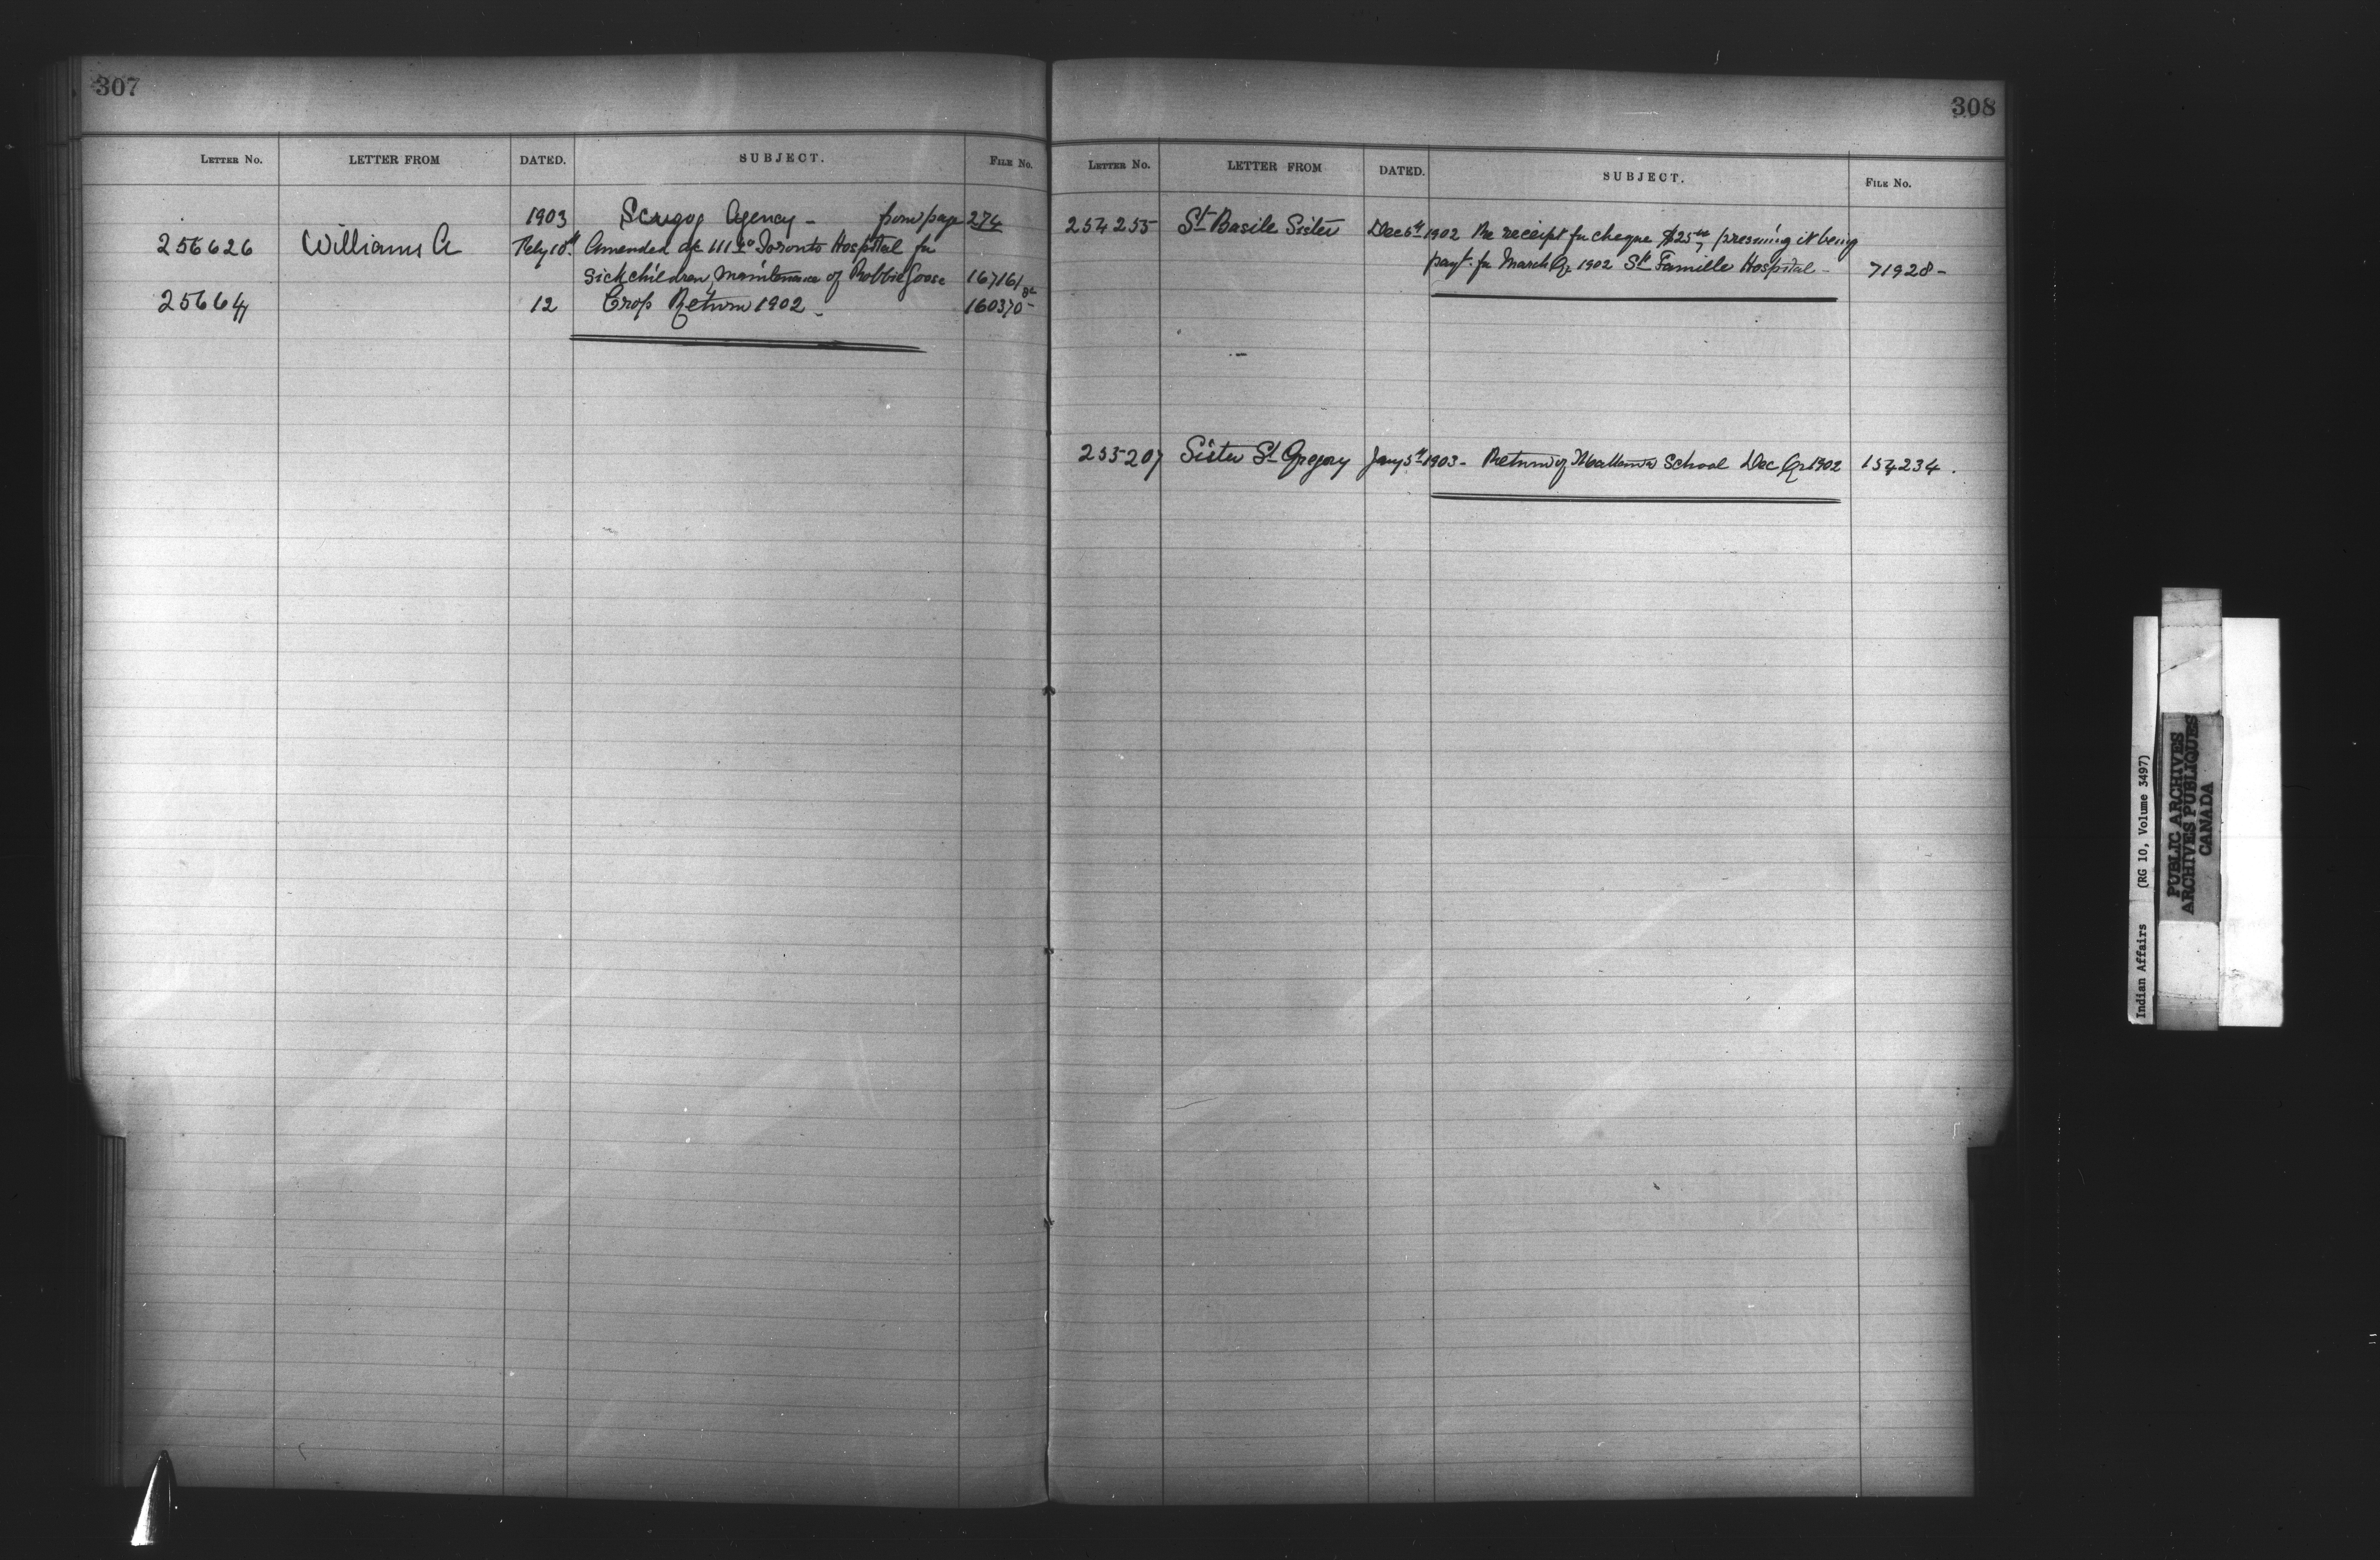 307
LETTER No. LETTER FROM DATED. SUBJECT. FILE No.
1903 Scugog Agency - from page 274
256626 Williams A Feby 10th Amended a/c 111.20 Toronto Hospital for
Sick children, Maintenance of Robbie Goose 167161
25664 12 Crop Return 1902 - 160370-
308
LETTER No. LETTER FROM DATED. SUBJECT. FILE No.
254255 St Basile Sister Dec 6th 1902 Re receipt for cheque $25 presuming it being
payt. for March Qr 1902 St Famille Hospital - 71928-
255207 Sister St Gregory Jany 5th 1903- Return of Mattawa School Dec Qr 1902 154234.
Indian Affairs (RG 10, Volume 3497)
PUBLIC ARCHIVES
ARCHIVES PUBLIQUES
CANADA